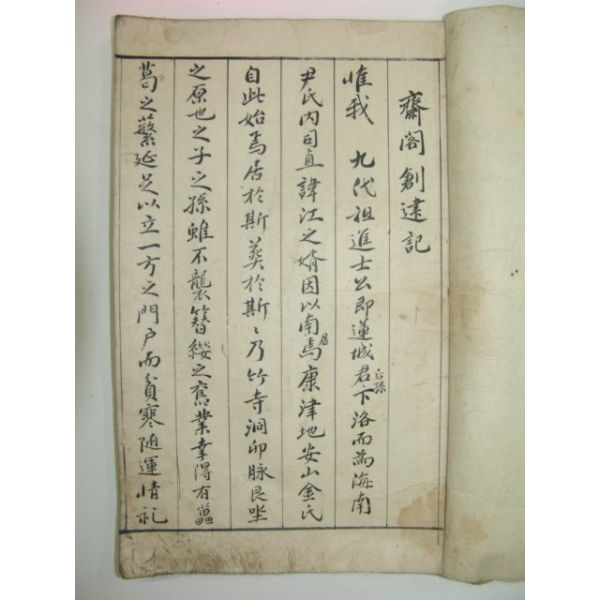 齋閣創建記
惟我 九代祖進士公即蓮城君下洛而為海南
尹氏內司直諱江之婿因以南焉康津地安山金氏
居
自此始焉居於斯葬於斯〻乃竹寺洞卯脉艮坐
之原也之子之孫雖不襲簪纓之舊業幸得有
葛之蘩延足以立一方之門戶而貧寒随運情礼